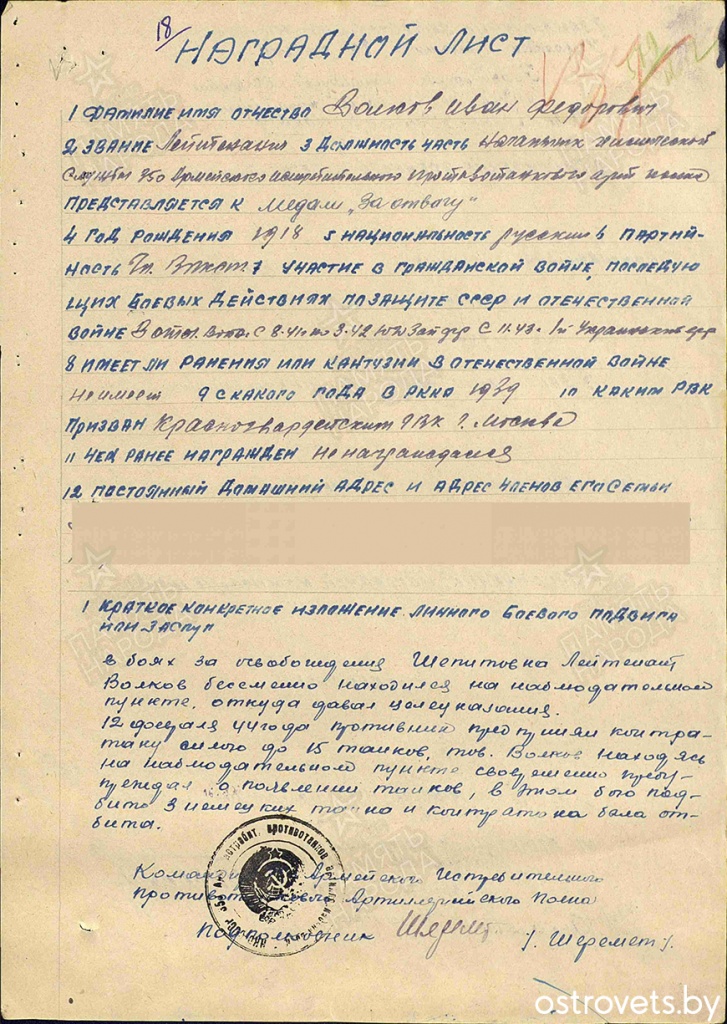 18/
НАГРАДНОЙ ЛИСТ
1 ФАМИЛИЕ ИМЯ ОТЧЕСТВО Волков Иван Федорович
2 ЗВАНИЕ Лейтенант 3 ДОЛЖНОСТЬ ЧАСТЬ Начальник химической
службы 350 Армейского истребительного противотанкового арт полка
ПРЕДСТАВЛЯЕТСЯ К Медали „За отвагу"
4 ГОД РОЖДЕНИЯ 1918 5 НАЦИОНАЛЬНОСТЬ русский 6 ПАРТИЙ-
НОСТЬ Чл. 7 УЧАСТИЕ В ГРАЖДАНСКОЙ ВОЙНЕ, ПОСЛЕДУЮ
ЩИХ БОЕВЫХ ДЕЙСТВИЯХ ПО ЗАЩИТЕ СССР И ОТЕЧЕСТВЕННОЙ
ВОЙНЕ В отеч. войне С 8.41 по 3.42 Зап фр С 11.43г. 1й Украинский фр
8 ИМЕЕТ ЛИ РАНЕНИЯ ИЛИ КАНТУЗИИ В ОТЕЧЕСТВЕННОЙ ВОЙНЕ
Не имеет 9 С КАКОГО ГОДА В РККА 1939 10 КАКИМ РВК
ПРИЗВАН Красногвардейским РВК г. Москва
11 ЧЕМ РАНЕЕ НАГРАЖДЕН Не награждался
12 ПОСТОЯННЫЙ ДОМАШНИЙ АДРЕС И АДРЕС ЧЛЕНОВ ЕГО СЕМЬИ
1 КРАТКОЕ КОНКРЕТНОЕ ИЗЛОЖЕНИЕ ЛИЧНОГО БОЕВОГО ПОДВИГА
ИЛИ ЗАСЛУГ
в боях за освобождения Шепитовка Лейтенант
Волков бессменно находился на наблюдательном
пункте, откуда давал целеуказания.
12 февраля 44 года противник предпринял контра-
таку силою до 15 танков, тов. Волков находясь
на наблюдательном пункте своевременно преду-
преждал о появлении танков, в этом бою под-
бито 3 немецких танка и контратака была от-
бита.
Армейского Истребительного
Артиллерийского Полка
Подполковник Шеремет /. Шеремет/.
ostrovets.by